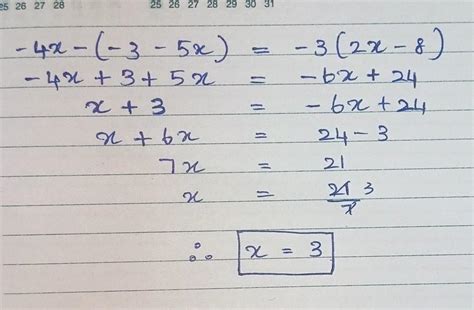 25 26 27 28 25 26 27 28 29 30 31
-4x - (-3 - 5x) = -3(2x - 8)
-4x + 3 + 5x = -6x + 24
x + 3 = -6x + 24
x + 6x = 24 - 3
7x = 21
x = 21 3 / 7
∴ x = 3